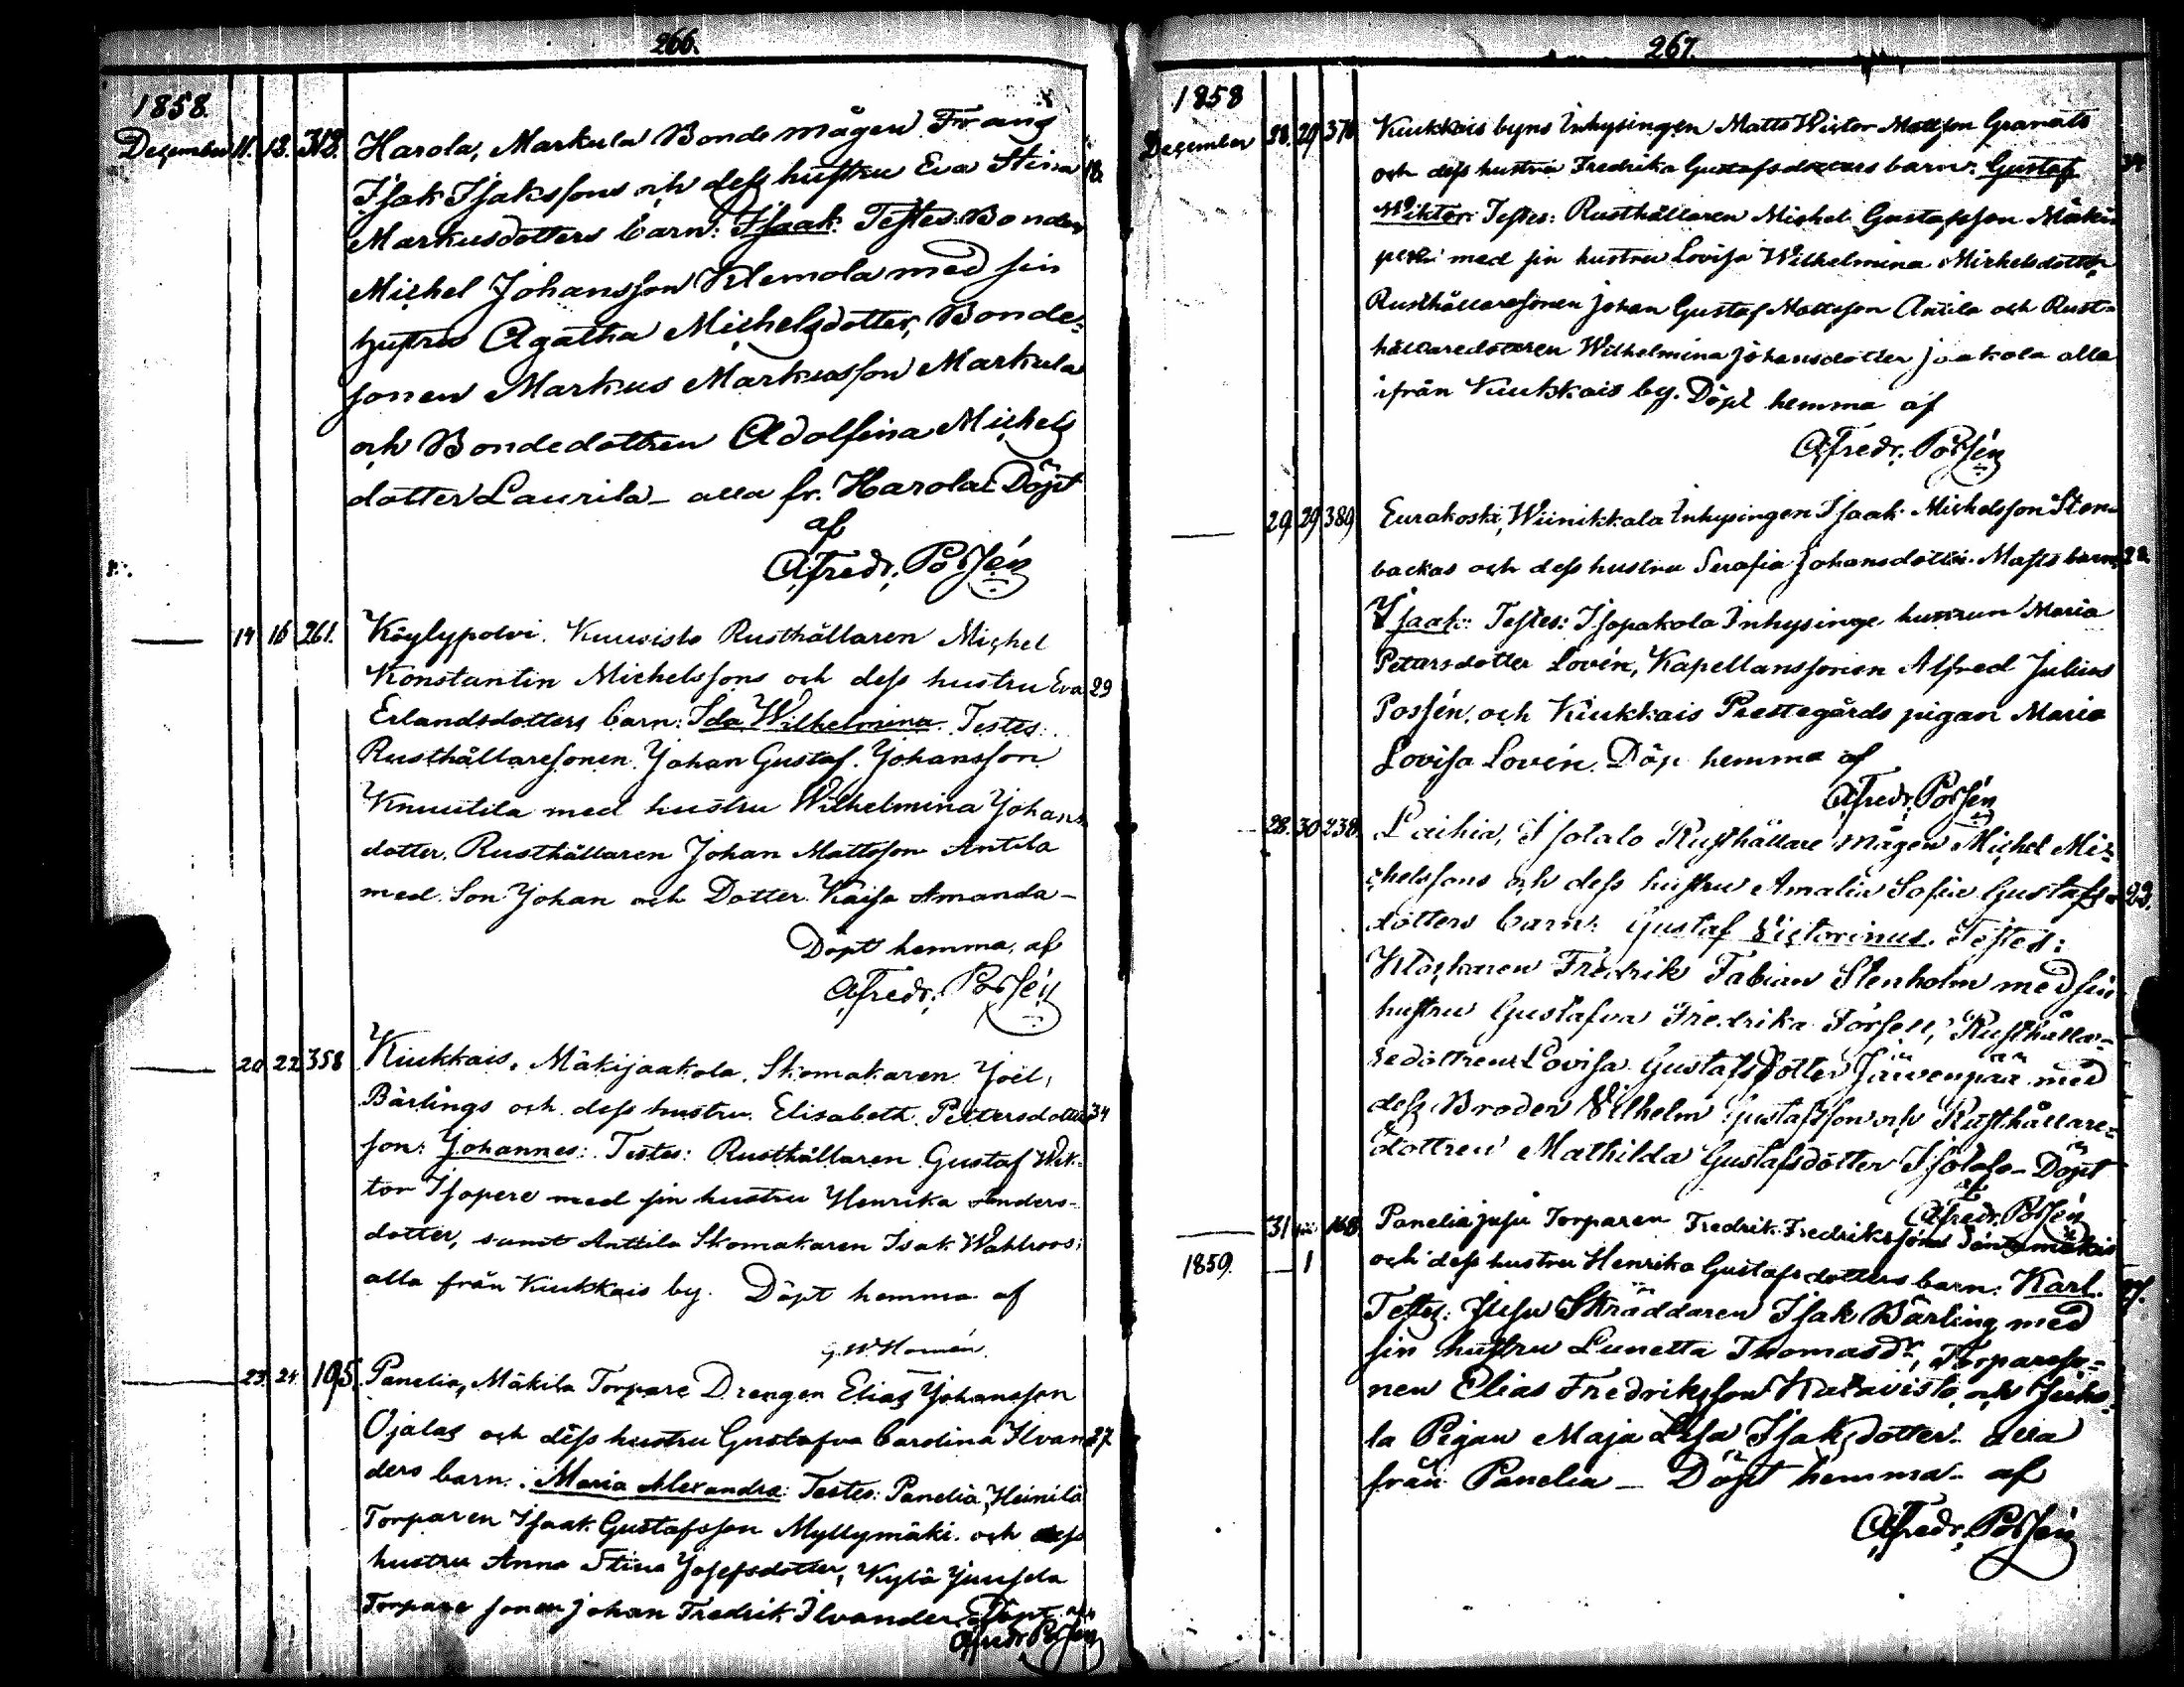 266.
1858.
December 11. 13. 318. Harola, Markula Bonde mågen Frans
Isak Isakssons och dess hustru Eva Stina 18.
Markusdotters barn: Isaak. Testes: Bonden
Michel Johansson Klemola med sin
hustru Agatha Michelsdotter, Bonde-
sonen Markus Markusson Markula
och Bondedottren Adolfina Michels
dotter Laurila – alla fr. Harola. Döpt
af
Afredr. Possén
14 16 261. Köylypolvi. Kuuvisto Rusthållaren Michel
Konstantin Michelssons och dess hustru Eva 29
Erlandsdotters barn: Ida Wilhelmina. Testes:
Rusthållaresonen Johan Gustaf Johansson
Knuutila med hustru Wilhelmina Johans
dotter. Rusthållaren Johan Mattsson Antila
med Son Johan och Dotter Kaisa Amanda –
Döpt hemma af
Afredr. Possén
20 22 358 Kiukkais, Mäkijaakola, Skomakaren Joel
Bärlings och dess hustru Elisabeth Pettersdotter 34
son: Johannes: Testes: Rusthållaren Gustaf Wik-
tor Isopere med sin hustru Henrika Anders-
dotter, samt Anttila Skomakaren Isak Wahlroos;
alla från Kiukkais by. Döpt hemma af
G. W. Homén.
23 24 195. Panelia, Mäkila Torpare Drengen Elias Johansson
Ojalas och dess hustru Gustafva Carolina Ilvan 27
ders barn: Maria Alexandra: Testes: Panelia, Heinilä
Torparen Isaak Gustafsson Myllymäki och dess
hustru Anna Stina Josefsdotter, Kylä Juusela
Torpare sonen Johan Fredrik Ilvander. Döpt af
Afredr. Possén
267.
1858
December 28. 29 370 Kiukkais byns Inhysingen Matts Wictor Mattsson Granats
och dess hustru Fredrika Gustafsdotters barn: Gustaf 34
Wiktor: Testes: Rusthållaren Michel Gustafsson Mäkin
perä med sin hustru Lovisa Wilhelmina Michelsdotter,
Rusthållaresonen Johan Gustaf Mattsson Antila och Rust-
hållaredottren Wilhelmina Johansdotter Jaakola alla
ifrån Kiukkais by. Döpt hemma af
Afredr. Possén
29 29 389 Eurakoski, Wiinikkala Inhysingen Isaak Michelsson Sten-
backas och dess hustru Serafia Johansdotter Masts barn, 22.
Isaak: Testes: Isopakola Inhysinge hustrun Maria
Petersdotter Lovén, Kapellanssonen Alfred Julius
Possén, och Kiukkais Prestegårds pigan Maria
Lovisa Lovén. Döp. hemma af
Afredr. Possén
28. 30 238. Laihia, Isotalo Rusthållare mågen Michel Mi-
chelssons och dess hustru Amalia Sofia Gustafs- 23.
dotters barn: Gustaf Victorinus. Testes:
Klockaren Fredrik Fabian Stenholm med sin
hustru Gustafva Fredrika Forsell, Rusthålla-
redottren Lovisa Gustafsdotter Järvenpää med
dess Broder Vilhelm Gustafsson och Rusthållare-
dottren Mathilda Gustafsdotter Isotalo – Döpt
af
Afredr. Possén
31 168. Panelia Juju Torparen Fredrik Fredrikssons Säntämäkis
1859. 1 och dess hustru Henrika Gustafsdotters barn: Karl.
Testes: Juju Skräddaren Isak Bärling med
sin hustru Lunetta Thomasdr, Torpareso-
nen Elias Fredriksson Katavisto och Juho-
la Pigan Maja Lisa Isaksdotter alla
från Panelia – Döpt hemma af
Afredr. Possén